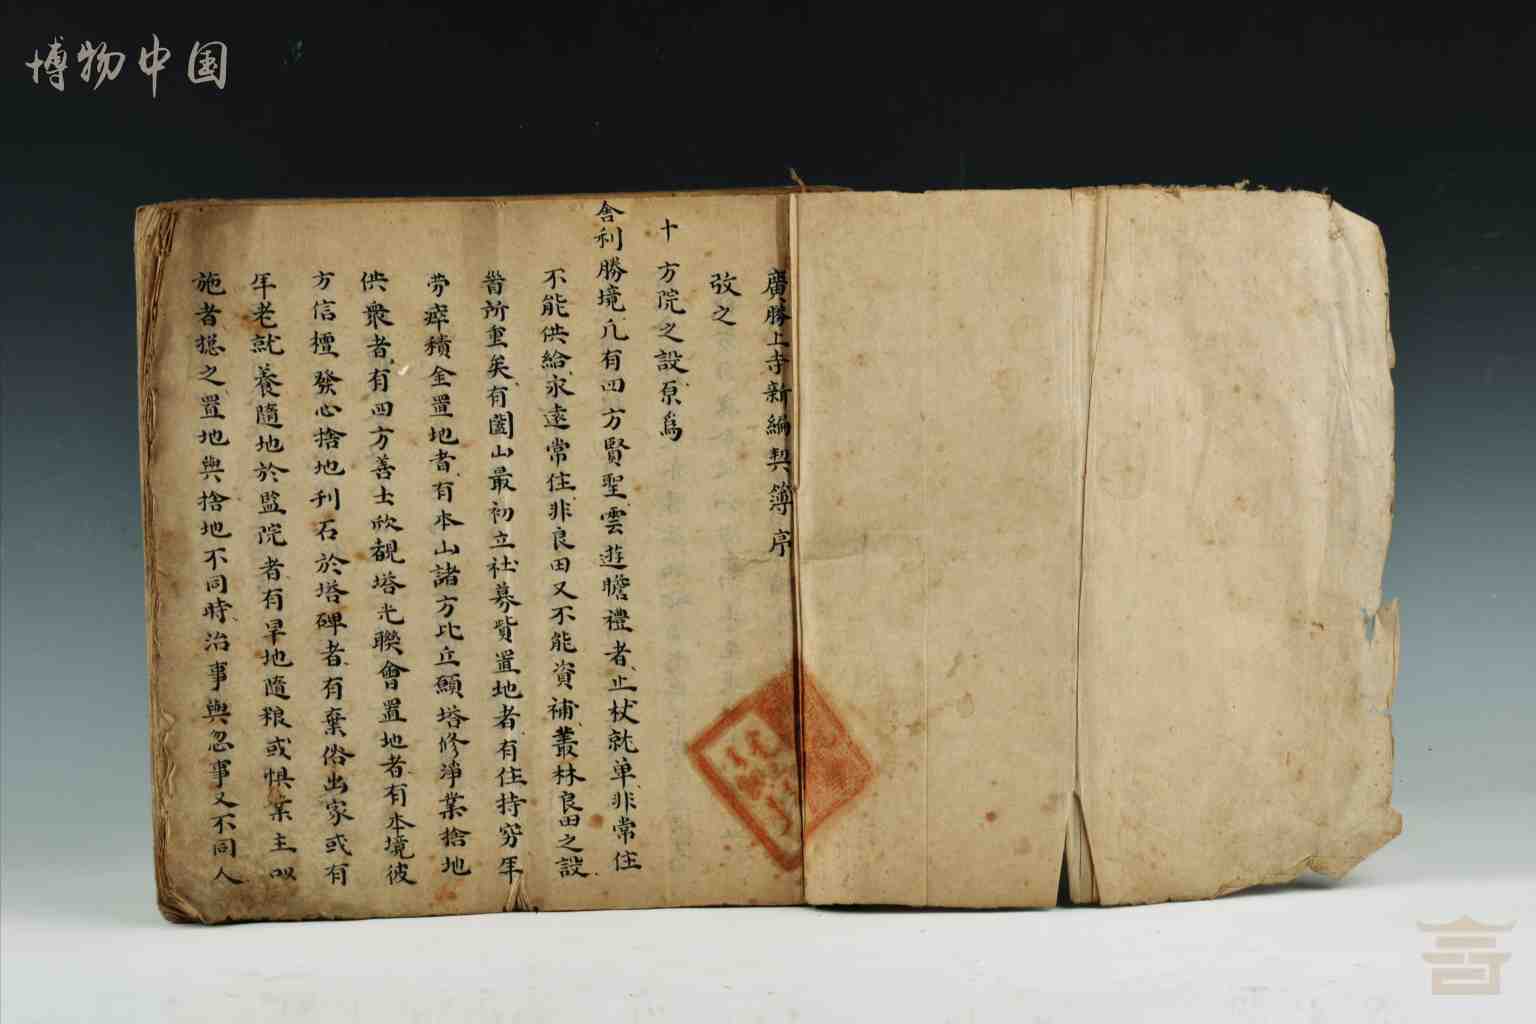 博物中国
廣勝上寺新編契簿序
攷之
十方院之設原爲
舍利勝境凢有四方賢聖雲遊瞻禮者止杖就单非常住
不能供給永遠常住非良田又不能資補叢林良田之設
昔所重矣有闔山最初立社募貲置地者有住持穷年
劳瘁積金置地者有本山諸方比丘顯塔修淨業捨地
供衆者有四方善士欣覩塔光聨會置地者有本境彼
方信檀發心捨地刋石於塔碑者有棄俗出家或有
年老就養隨地於監院者有旱地隨粮或惧業主以
施者揔之置地與捨地不同時治事與忽事又不同人